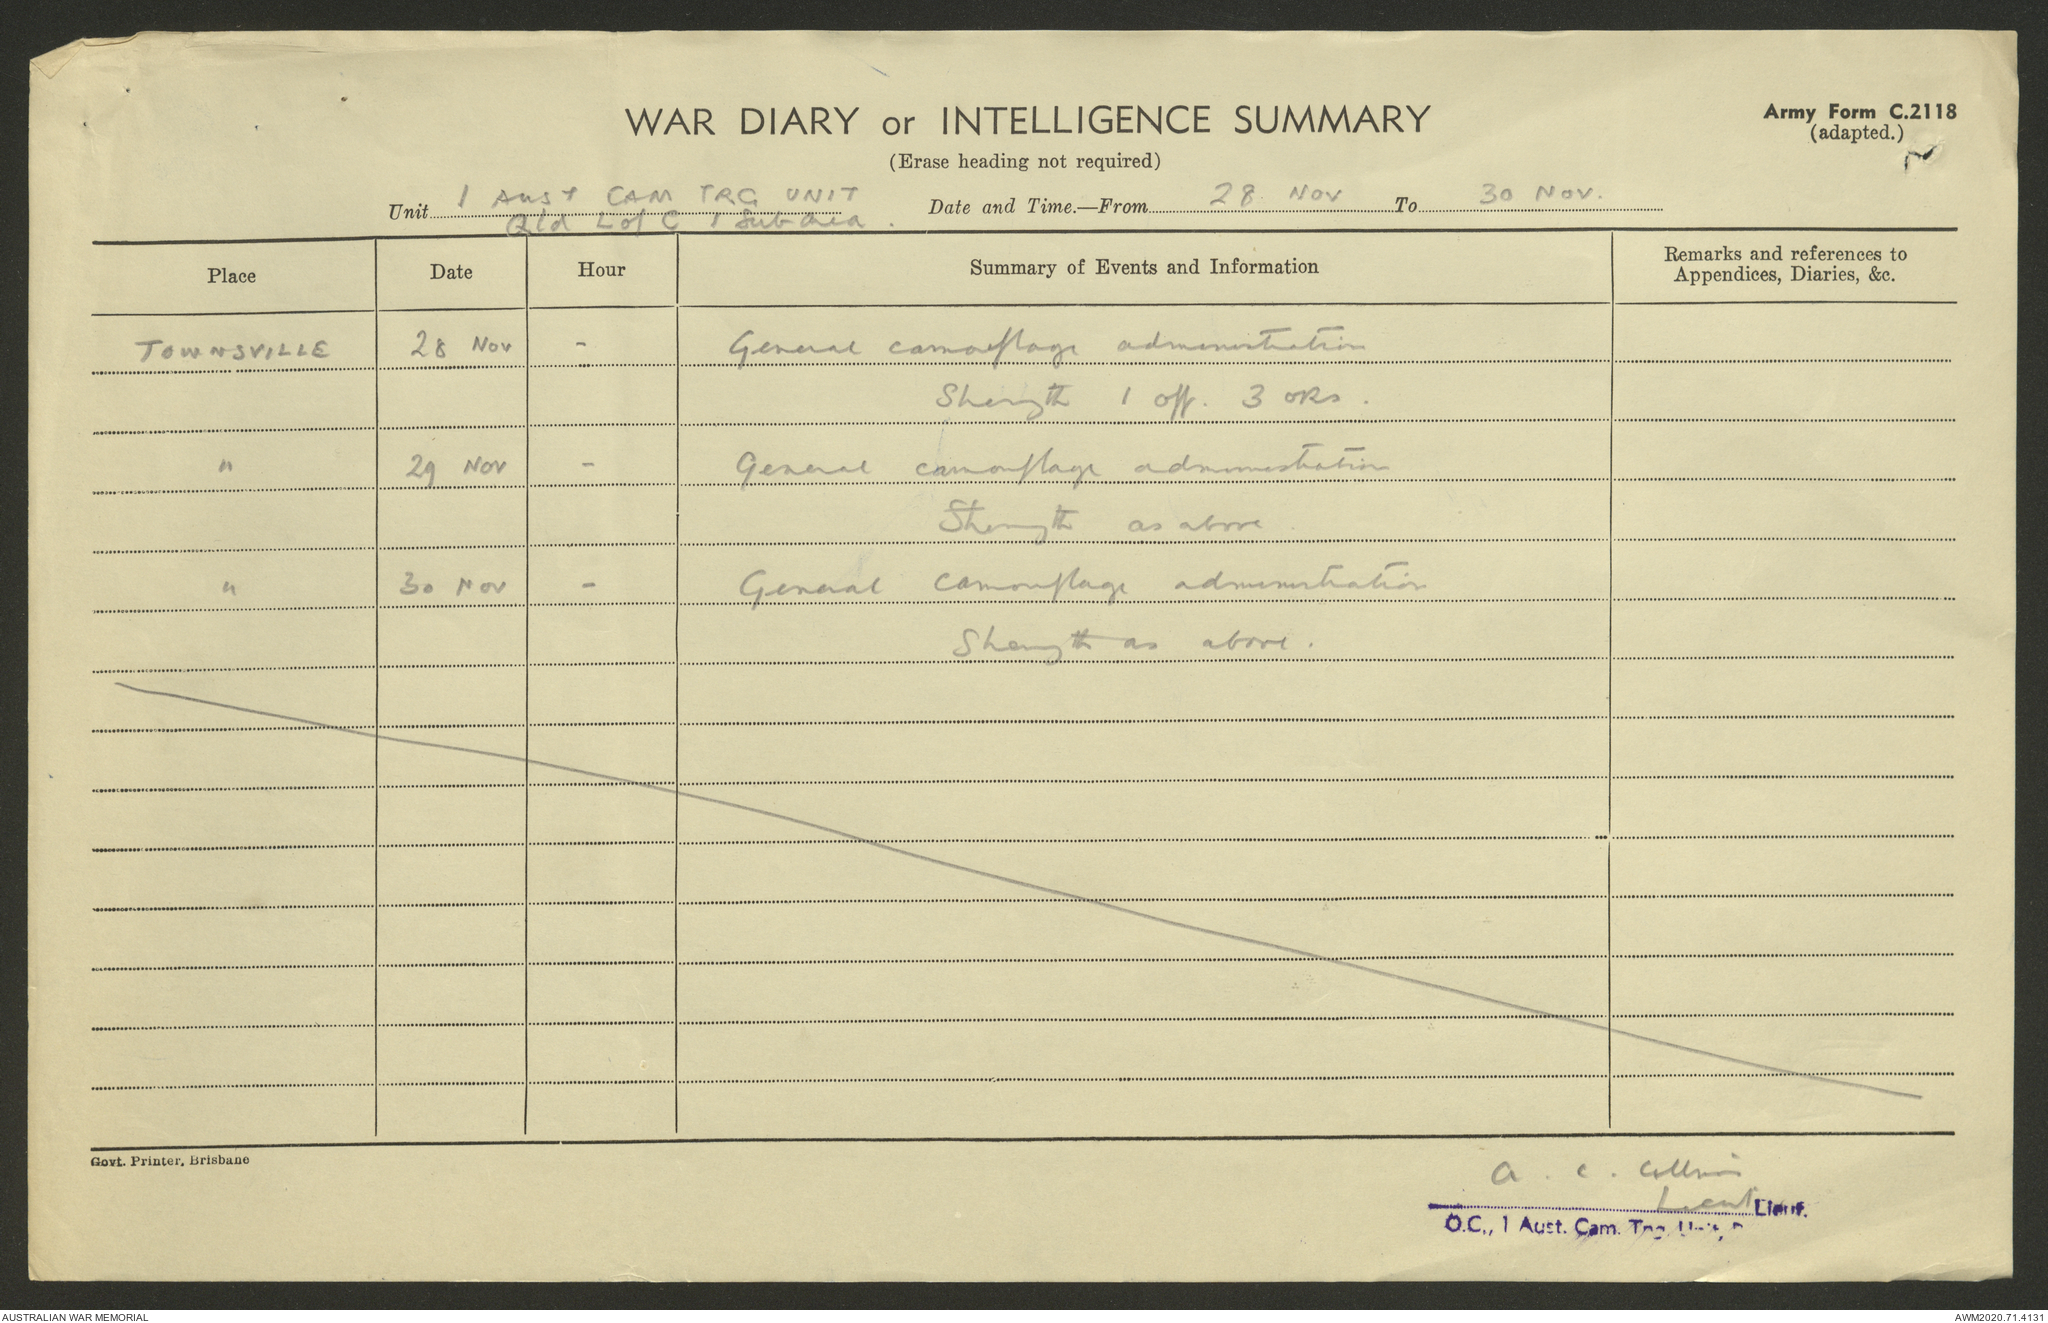 WAR DIARY or INTELLIGENCE SUMMARY
Army Form C.2118
(adapted.)
(Erase heading not required)
Unit 1 AUST CAM TRG UNIT
Qld L of C 1 Sub-area.
Date and Time.—From 28 NOV To 30 NOV.
Place Date Hour Summary of Events and Information Remarks and references to
Appendices, Diaries, &c.
TOWNSVILLE 28 NOV - General camouflage administration
Strength 1 off. 3 ORs.
" 29 NOV - General camouflage administration
Strength as above.
" 30 NOV - General camouflage administration
Strength as above.
Govt. Printer, Brisbane
A. C. Collins
Lieut Lieut.
O.C., 1 Aust. Cam. Trg. Unit,
AUSTRALIAN WAR MEMORIAL
AWM2020.71.4131